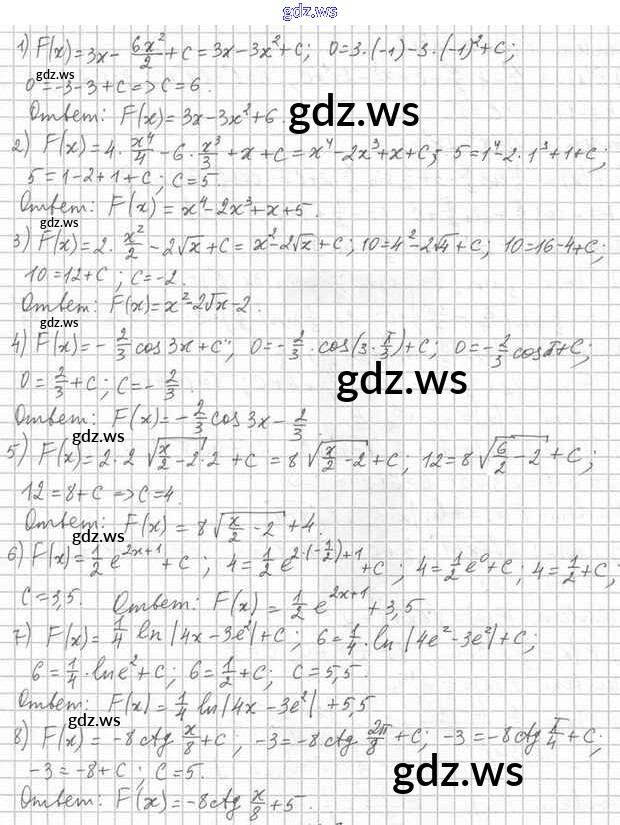 gdz.ws
1) F(x)=3x- 6x²/2 +c=3x-3x²+c; 0=3·(-1)-3·(-1)²+c;
gdz.ws
0=-3-3+c=>c=6.
gdz.ws
Ответ: F(x)=3x-3x²+6.
2) F(x)=4·x⁴/4-6·x³/3+x+c=x⁴-2x³+x+c; 5=1⁴-2·1³+1+c;
5=1-2+1+c; c=5.
gdz.ws
Ответ: F(x)=x⁴-2x³+x+5.
3) F(x)=2·x²/2-2√x+c=x²-2√x+c; 10=4²-2√4+c; 10=16-4+c;
10=12+c; c=-2.
Ответ: F(x)=x²-2√x-2.
gdz.ws
4) F(x)=-2/3 cos3x+c; 0=-2/3·cos(3·π/3)+c; 0=-2/3 cosπ+c;
gdz.ws
0=2/3+c; c=-2/3.
Ответ: F(x)=-2/3 cos3x-2/3.
gdz.ws
5) F(x)=2·2√(x/2-2)·2+c=8√(x/2-2)+c; 12=8√(6/2-2)+c;
12=8+c=>c=4.
gdz.ws
Ответ: F(x)=8√(x/2-2)+4.
6) F(x)=1/2 e^(2x+1)+c; 4=1/2 e^(2·(-1/2)+1)+c; 4=1/2 e⁰+c; 4=1/2+c;
c=3,5. Ответ: F(x)=1/2 e^(2x+1)+3,5.
gdz.ws
7) F(x)=1/4 ln|4x-3e²|+c; 6=1/4·ln|4e²-3e²|+c;
6=1/4·lne²+c; 6=1/2+c; c=5,5.
Ответ: F(x)=1/4 ln|4x-3e²|+5,5
gdz.ws
8) F(x)=-8ctg x/8+c; -3=-8ctg 2π/8+c; -3=-8ctg π/4+c;
-3=-8+c; c=5.
gdz.ws
Ответ: F(x)=-8ctg x/8+5.